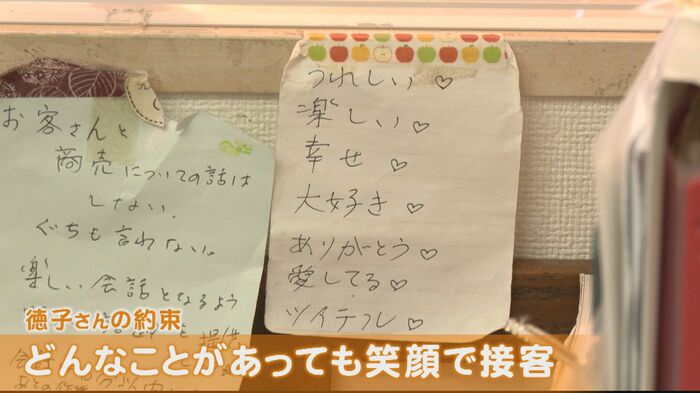 お客さんと
商売についての話は
しない.
ぐちも言わない。
楽しい会話となるよう
うれしい♡
楽しい♡
幸せ♡
大好き♡
ありがとう♡
愛してる♡
ツイテル♡
徳子さんの約束
どんなことがあっても笑顔で接客